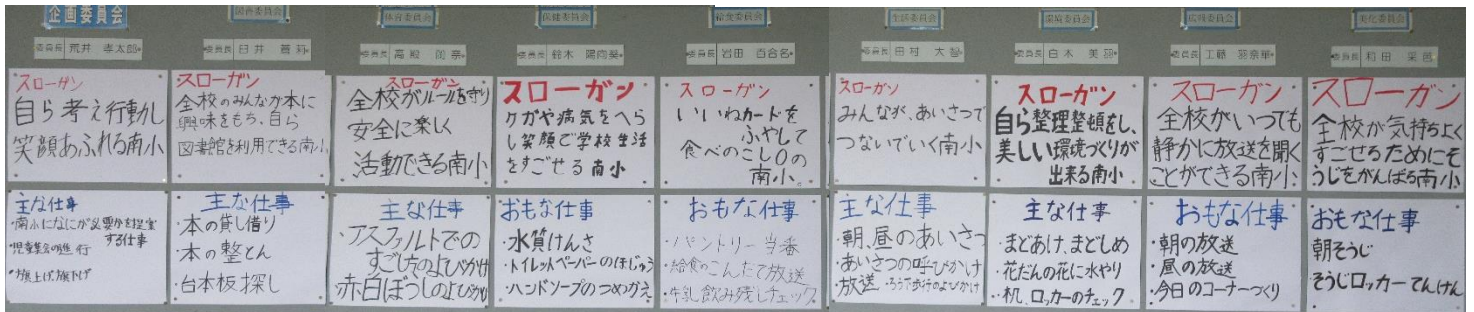 企画委員会
委員長 荒井 孝太郎
スローガン
自ら考え行動し
笑顔あふれる南小
主な仕事
・南小になにが必要かを提案
する仕事
・児童集会の進行
・旗上げ、旗下げ
図書委員会
委員長 臼井 蒼莉
スローガン
全校のみんなが本に
興味をもち、自ら
図書館を利用できる南小
主な仕事
・本の貸し借り
・本の整とん
・台本板探し
体育委員会
委員長 高殿
スローガン
全校がルールを守り
安全に楽しく
活動できる南小
主な仕事
・アスファルトでの
すごし方のよびかけ
・赤白ぼうしのよびかけ
保健委員会
委員長 鈴木 陽向葵
スローガン
ケガや病気をへら
し笑顔で学校生活
をすごせる南小
おもな仕事
・水質けんさ
・トイレットペーパーのほじゅう
・ハンドソープのつめかえ
給食委員会
委員長 岩田 百合名
スローガン
いいねカードを
ふやして
食べのこし0の
南小。
おもな仕事
・パントリー当番
・給食のこんだて放送
・牛乳飲み残しチェック
生活委員会
委員長 田村 大智
スローガン
みんなが、あいさつで
つないでいく南小
主な仕事
・朝、昼のあいさつ
・あいさつの呼びかけ
・放送 ・ろうか歩行のよびかけ
環境委員会
委員長 白木 美羽
スローガン
自ら整理整頓をし、
美しい環境づくりが
出来る南小
主な仕事
・まどあけ、まどしめ
・花だんの花に水やり
・机、ロッカーのチェック
広報委員会
委員長 工藤 羽奈華
スローガン
全校がいつでも
静かに放送を聞く
ことができる南小
おもな仕事
・朝の放送
・昼の放送
・今日のコーナーづくり
美化委員会
委員長 和田
スローガン
全校が気持ちよく
すごせるためにそ
うじをがんばる南小
おもな仕事
朝そうじ
そうじロッカーてんけん